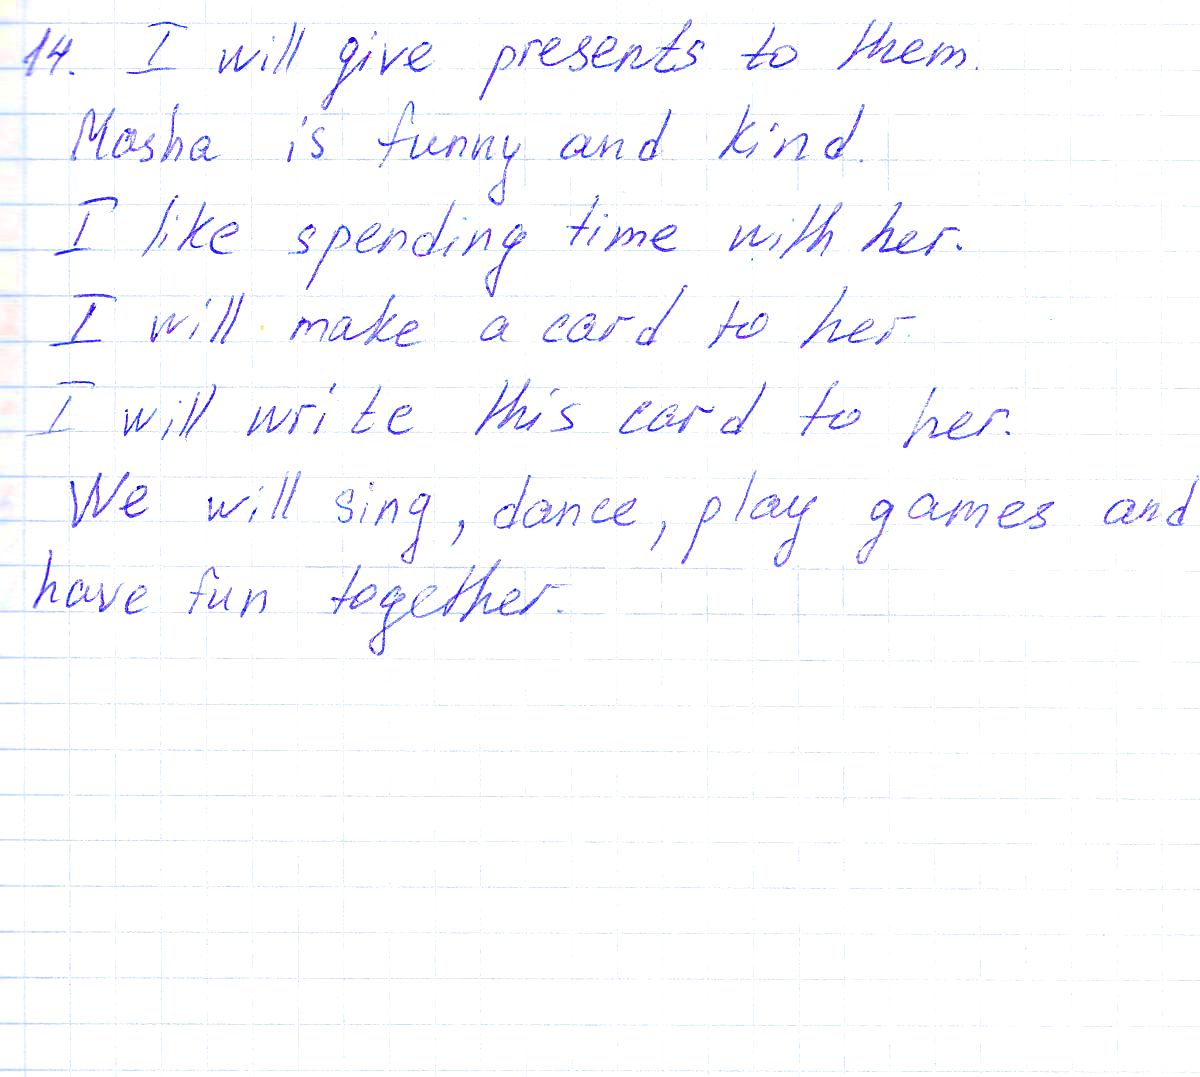 14. I will give presents to them.
Masha is funny and kind.
I like spending time with her.
I will make a card to her.
I will write this card to her.
We will sing, dance, play games and
have fun together.